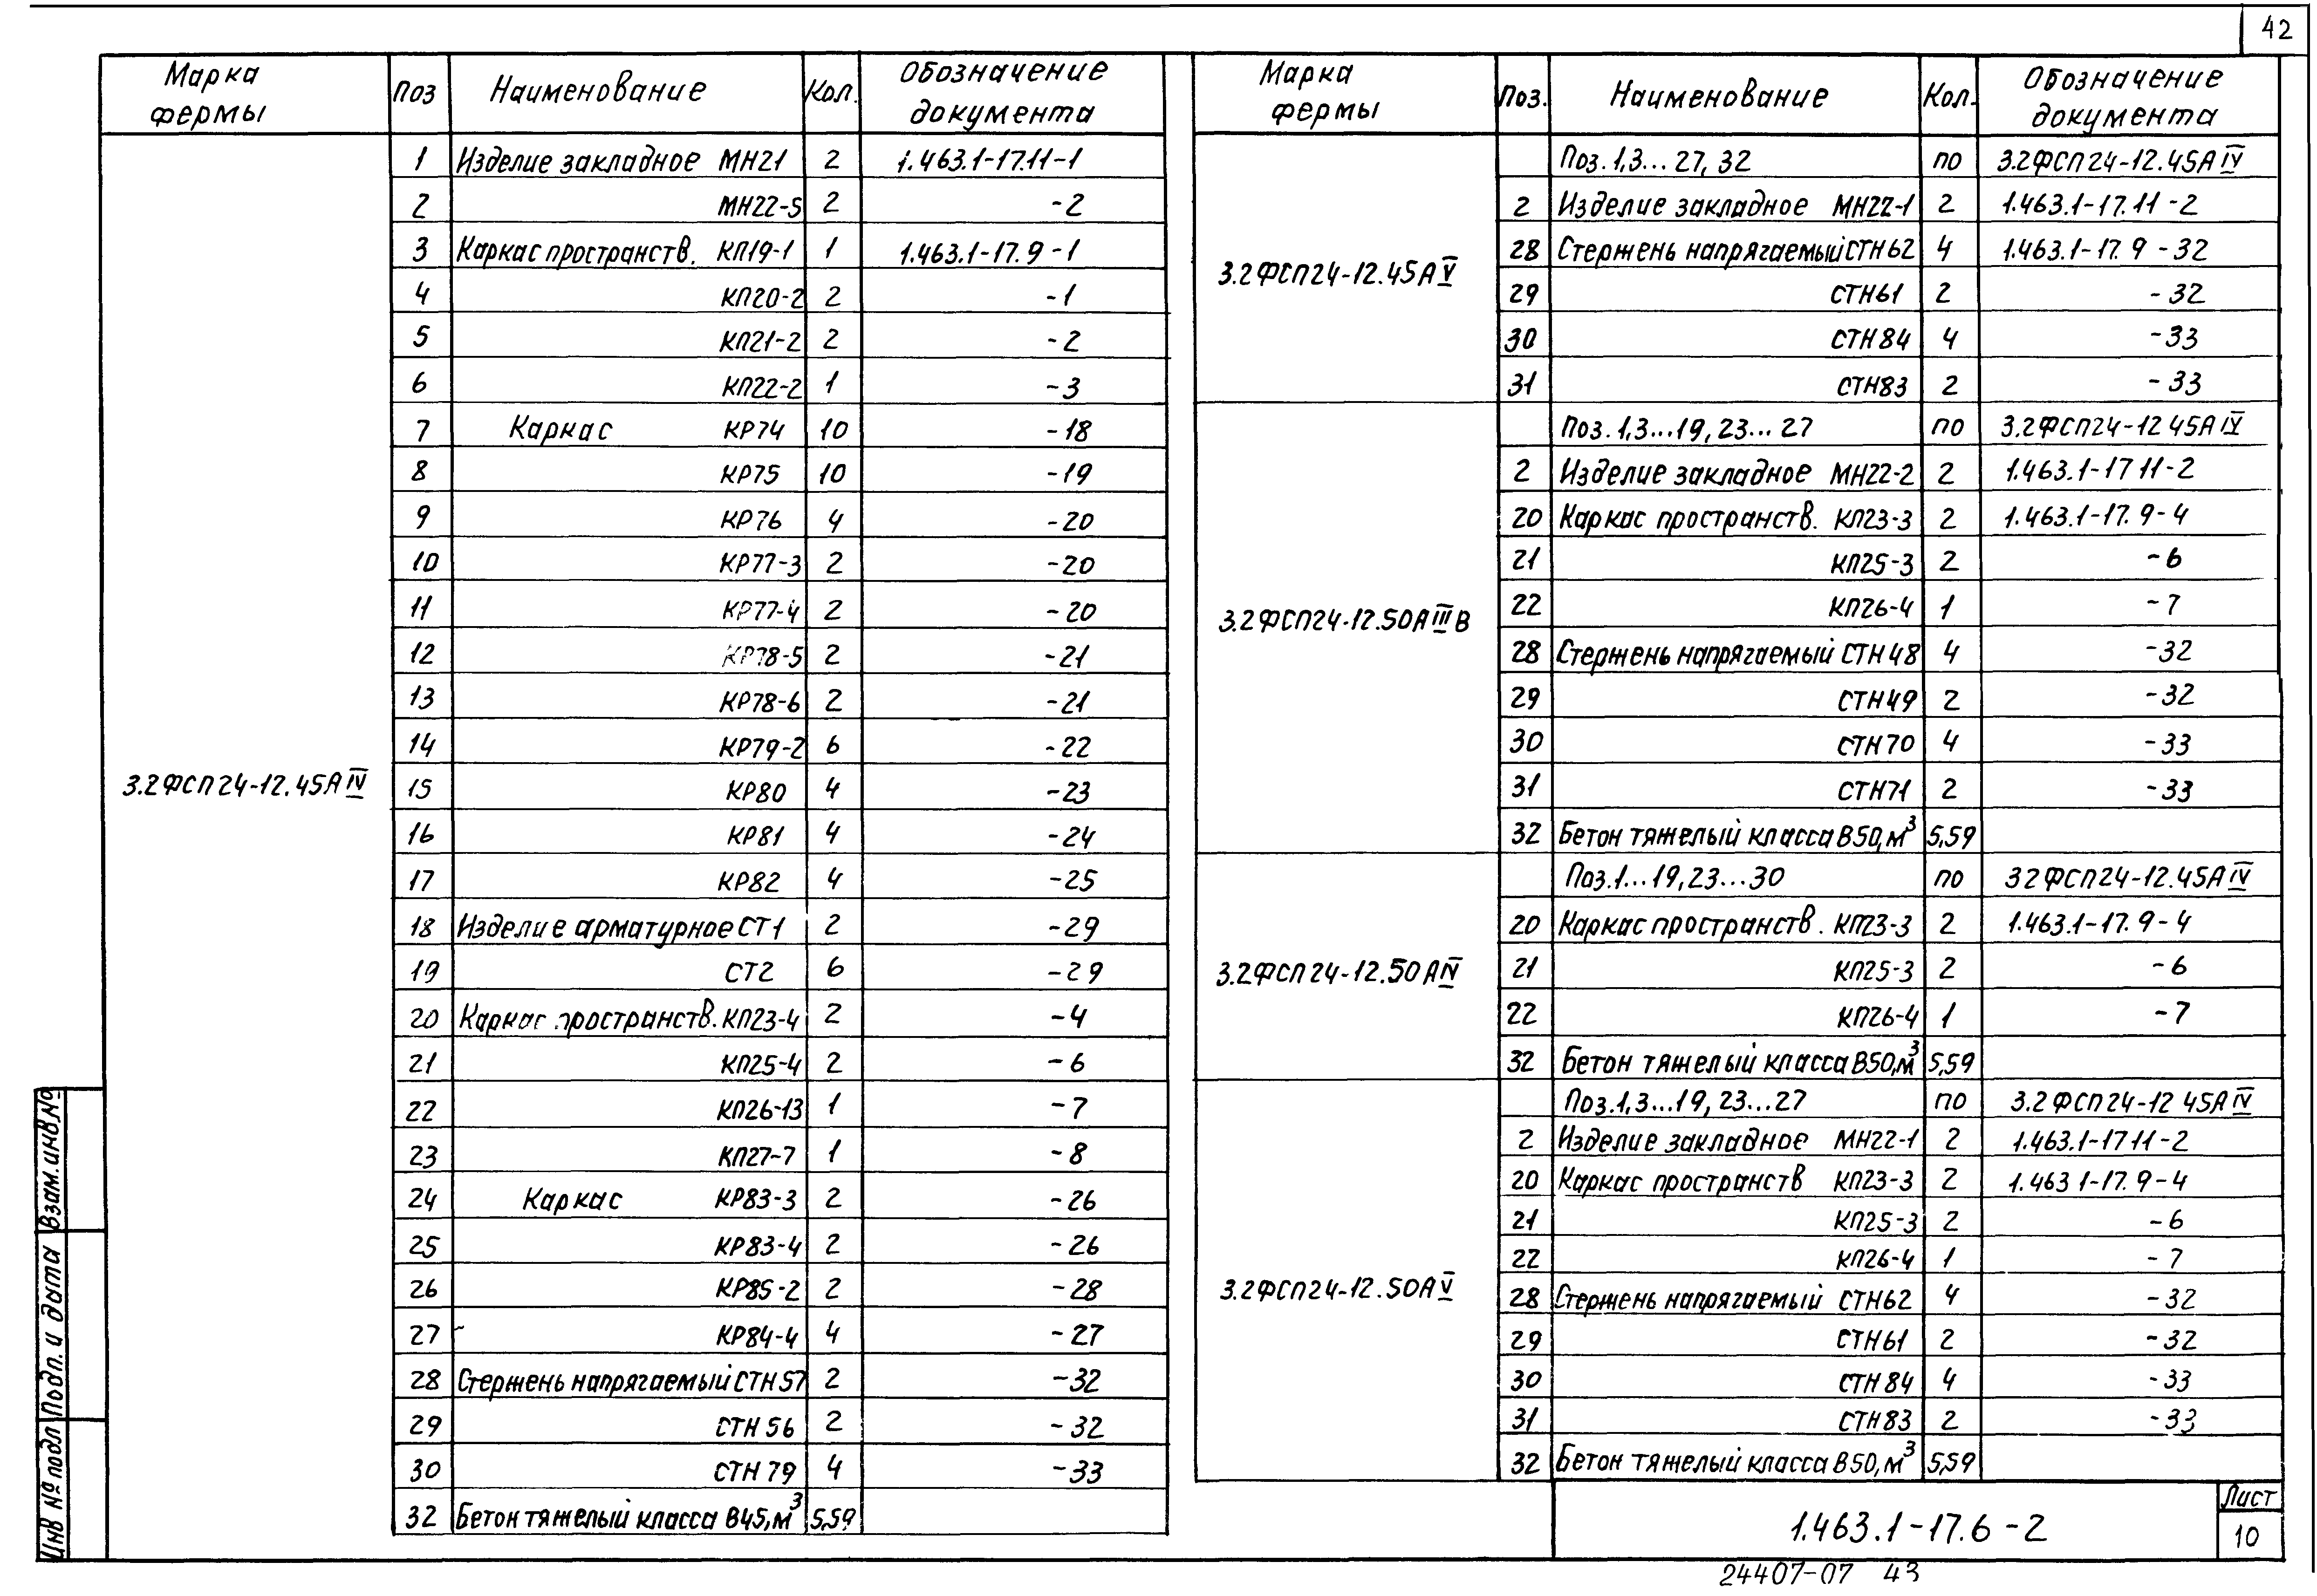 42
Марка фермы Поз Наименование Кол. Обозначение документа
3.2ФСП24-12.45АIV
1 Изделие закладное МН21 2 1.463.1-17.11-1
2 МН22-5 2 -2
3 Каркас пространств. КП19-1 1 1.463.1-17.9-1
4 КП20-2 2 -1
5 КП21-2 2 -2
6 КП22-2 1 -3
7 Каркас КР74 10 -18
8 КР75 10 -19
9 КР76 4 -20
10 КР77-3 2 -20
11 КР77-4 2 -20
12 КР78-5 2 -21
13 КР78-6 2 -21
14 КР79-2 6 -22
15 КР80 4 -23
16 КР81 4 -24
17 КР82 4 -25
18 Изделие арматурное СТ1 2 -29
19 СТ2 6 -29
20 Каркас пространств. КП23-4 2 -4
21 КП25-4 2 -6
22 КП26-13 1 -7
23 КП27-7 1 -8
24 Каркас КР83-3 2 -26
25 КР83-4 2 -26
26 КР85-2 2 -28
27 КР84-4 4 -27
28 Стержень напрягаемый СТН57 2 -32
29 СТН56 2 -32
30 СТН79 4 -33
32 Бетон тяжелый класса В45, м³ 5,59
Марка фермы Поз. Наименование Кол. Обозначение документа
3.2ФСП24-12.45АV
Поз.1,3...27,32 по 3.2ФСП24-12.45АIV
2 Изделие закладное МН22-1 2 1.463.1-17.11-2
28 Стержень напрягаемый СТН62 4 1.463.1-17.9-32
29 СТН61 2 -32
30 СТН84 4 -33
31 СТН83 2 -33
3.2ФСП24-12.50АIIIВ
Поз.1,3...19,23...27 по 3.2ФСП24-12 45АIV
2 Изделие закладное МН22-2 2 1.463.1-17 11-2
20 Каркас пространств. КП23-3 2 1.463.1-17.9-4
21 КП25-3 2 -6
22 КП26-4 1 -7
28 Стержень напрягаемый СТН48 4 -32
29 СТН49 2 -32
30 СТН70 4 -33
31 СТН71 2 -33
32 Бетон тяжелый класса В50, м³ 5,59
3.2ФСП24-12.50АIV
Поз.1...19,23...30 по 32ФСП24-12.45АIV
20 Каркас пространств. КП23-3 2 1.463.1-17.9-4
21 КП25-3 2 -6
22 КП26-4 1 -7
32 Бетон тяжелый класса В50, м³ 5,59
3.2ФСП24-12.50АV
Поз.1,3...19,23...27 по 3.2ФСП24-12 45АIV
2 Изделие закладное МН22-1 2 1.463.1-17 11-2
20 Каркас пространств КП23-3 2 1.463 1-17.9-4
21 КП25-3 2 -6
22 КП26-4 1 -7
28 Стержень напрягаемый СТН62 4 -32
29 СТН61 2 -32
30 СТН84 4 -33
31 СТН83 2 -33
32 Бетон тяжелый класса В50, м³ 5,59
Взам.инв.№
Подп. и дата
Инв № подл
1.463.1-17.6-2
Лист
10
24407-07 43